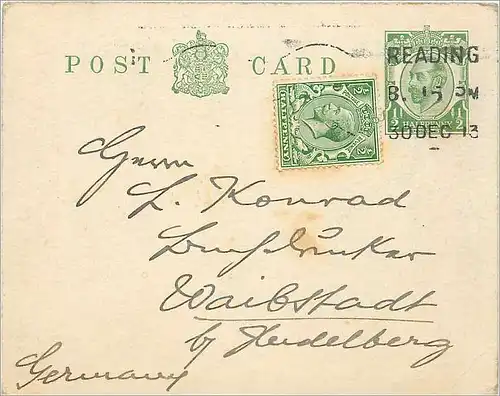 POST CARD
READING
8. 15 PM
30 DEC 13
½ HALFPENNY ½
½ HALFPENNY ½
Herrn
L. Konrad
Buchdrucker
Waibstadt
by Heidelberg
Germany